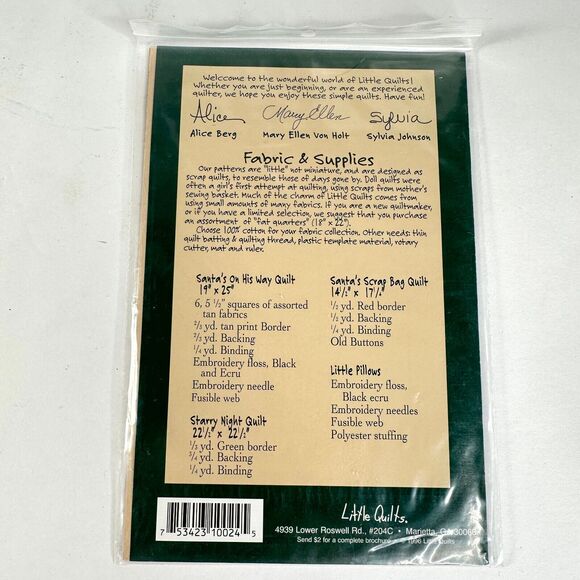 Welcome to the wonderful world of Little Quilts!
Whether you are just beginning, or are an experienced
quilter, we hope you enjoy these simple quilts. Have fun!
Alice Mary Ellen Sylvia
Alice Berg Mary Ellen Von Holt Sylvia Johnson
Fabric & Supplies
Our patterns are "little" not miniature, and are designed as
scrap quilts, to resemble those of days gone by. Doll quilts were
often a girl's first attempt at quilting, using scraps from mother's
sewing basket. Much of the charm of Little Quilts comes from
using small amounts of many fabrics. If you are a new quiltmaker,
or if you have a limited selection, we suggest that you purchase
an assortment of "fat quarters" (18" x 22").
Choose 100% cotton for your fabric collection. Other needs: thin
quilt batting & quilting thread, plastic template material, rotary
cutter, mat and ruler.
Santa's On His Way Quilt
19" x 25"
6, 5 ½" squares of assorted
tan fabrics
⅔ yd. tan print Border
⅔ yd. Backing
¼ yd. Binding
Embroidery floss, Black
and Ecru
Embroidery needle
Fusible web
Starry Night Quilt
22½" x 22½"
⅓ yd. Green border
¾ yd. Backing
¼ yd. Binding
Santa's Scrap Bag Quilt
14½" x 17½"
½ yd. Red border
½ yd. Backing
¼ yd. Binding
Old Buttons
Little Pillows
Embroidery floss,
Black ecru
Embroidery needles
Fusible web
Polyester stuffing
7 53423 10024 5
Little Quilts.
4939 Lower Roswell Rd., #204C • Marietta, GA 30068
Send $2 for a complete brochure © 1996 Little Quilts